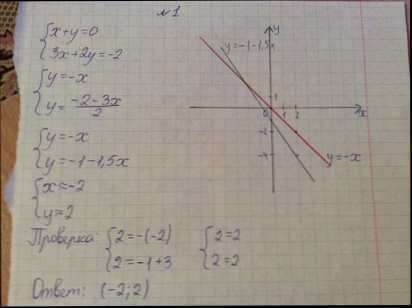 №1
{x+y=0
{3x+2y=-2
{y=-x
{y=\frac{-2-3x}{2}
{y=-x
{y=-1-1,5x
{x=-2
{y=2
Проверка: {2=-(-2) {2=2
{2=-1+3 {2=2
Ответ: (-2;2)
y
y=-1-1,5x
0 1 2 x
y=-x